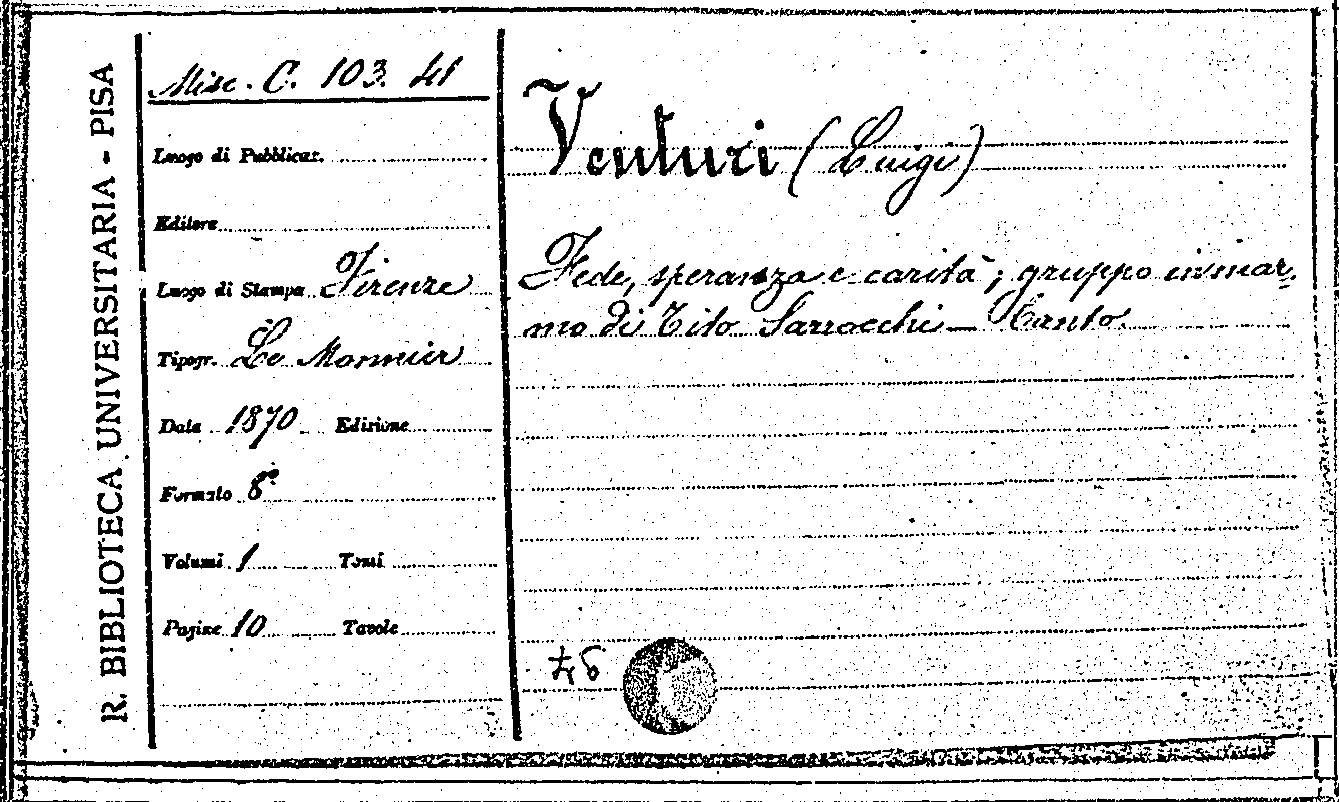 R. BIBLIOTECA UNIVERSITARIA - PISA
Misc. C. 103. 41
Luogo di Pubblicaz.
Editore
Luogo di Stampa Firenze
Tipogr. Le Monnier
Data 1870 Edizione
Formato 8°
Volumi 1 Tomi
Pagine 10 Tavole
Venturi (Luigi)
Fede, speranza e carità; gruppo in mar-
mo di Tito Sarrocchi — Canto.